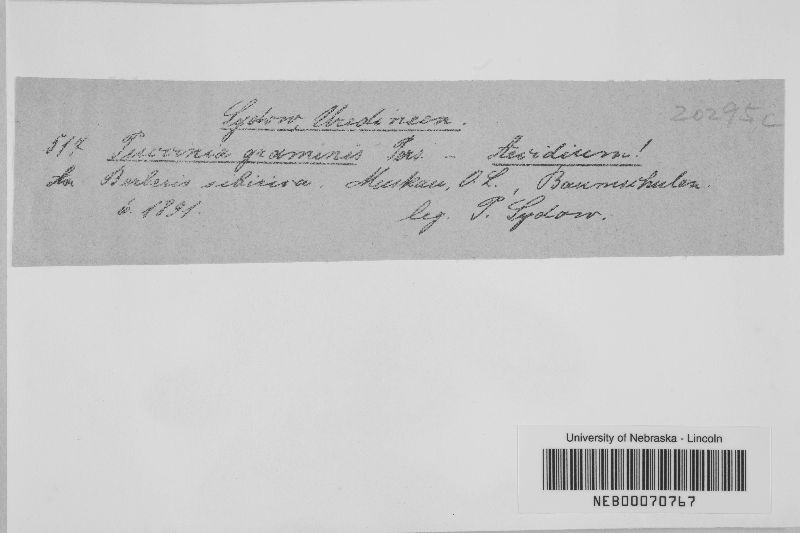 Sydow, Uredineen. 20295C
517. Puccinia graminis Pers. – Aecidium!
An Berberis sibirica. Muskau, O.L., Baumschulen.
6. 1891.
leg. P. Sydow.
University of Nebraska - Lincoln
NEB00070767